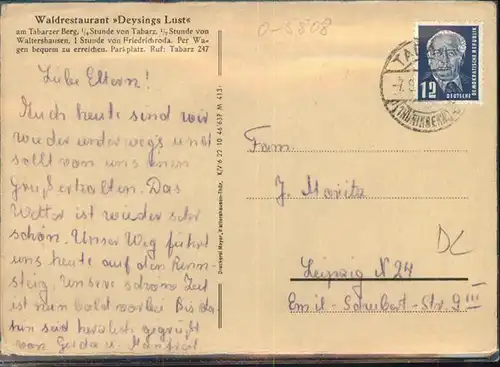 Waldrestaurant »Deysings Lust«
am Tabarzer Berg, ¼ Stunde von Tabarz, ½ Stunde von
Waltershausen, 1 Stunde von Friedrichroda. Per Wa-
gen bequem zu erreichen. Parkplatz. Ruf: Tabarz 247
Liebe Eltern!
Auch heute sind wir
wieder unterwegs und
sollt von uns einen
Gruß erhalten. Das
Wetter ist wieder sehr
schön. Unser Weg führt
uns heute auf den Renn-
steig. Unsere schöne Zeit
ist nun bald vorbei. Bis da-
hin seid herzlich gegrüßt
von Gerda u. Manfred
K/V 6 22 10 46/637 M 413
0-5808
12
DEUTSCHE
DEMOKRATISCHE REPUBLIK
Fam.
J. Moritz
DC
Leipzig N 24
Emil-Schubert-Str. 9 III